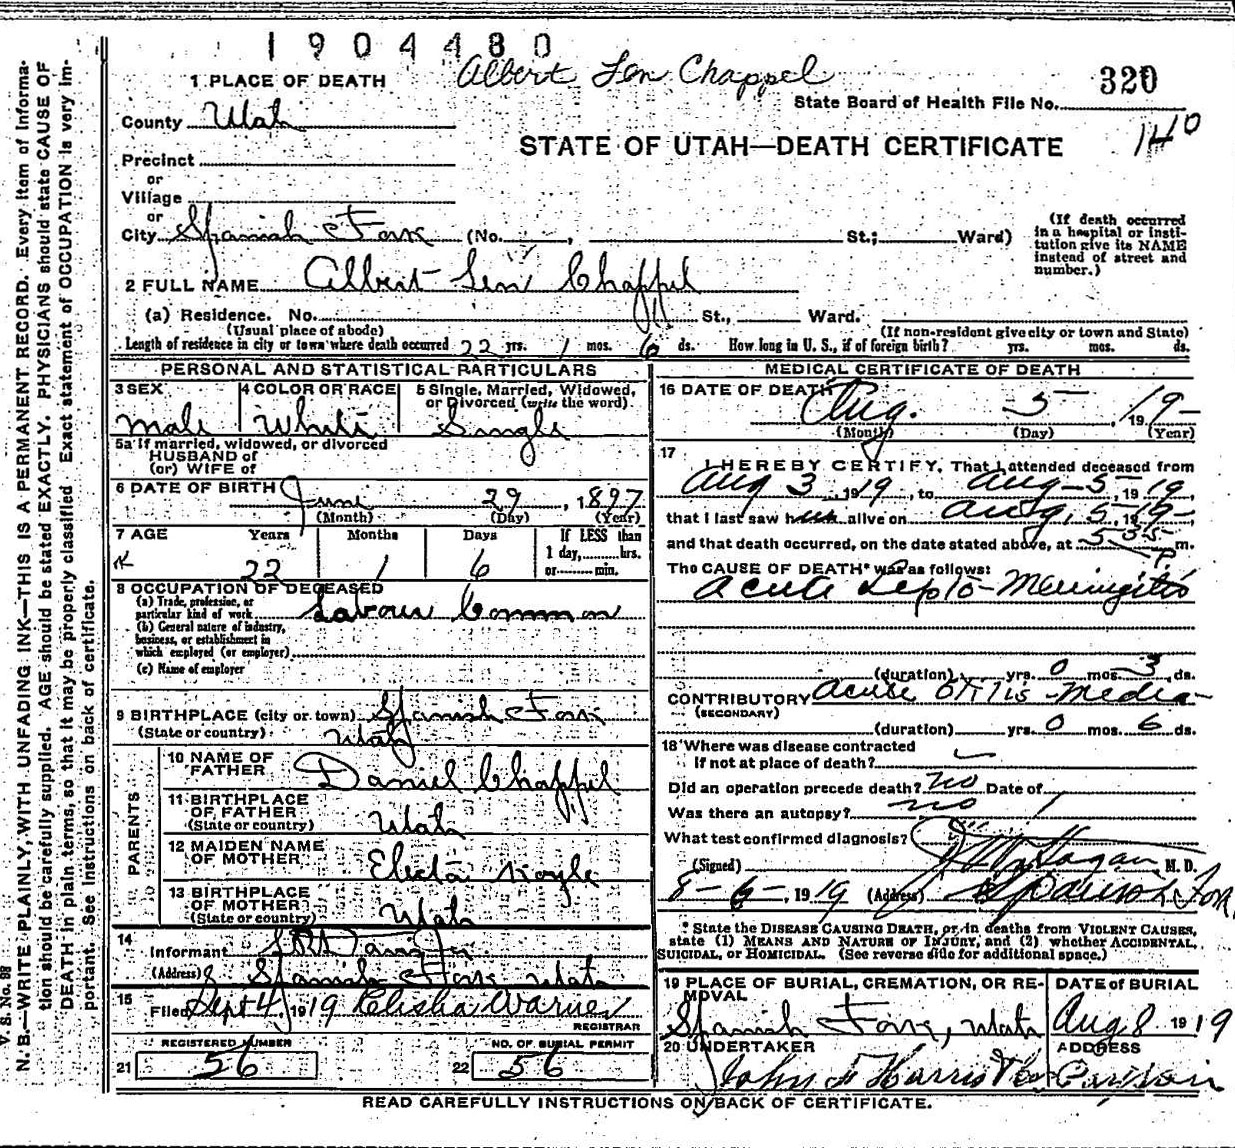 1904480
Albert Len Chappel
1 PLACE OF DEATH
320
State Board of Health File No.
County Utah
140
STATE OF UTAH—DEATH CERTIFICATE
Precinct
or
Village
or
City Spanish Fork (No. , St.; Ward)
(If death occurred in a hospital or institution give its NAME instead of street and number.)
2 FULL NAME Albert Len Chappel
(a) Residence. No. St., Ward.
(Usual place of abode) (If non-resident give city or town and State)
Length of residence in city or town where death occurred 22 yrs. 1 mos. 6 ds. How long in U. S., if of foreign birth? yrs. mos. ds.
PERSONAL AND STATISTICAL PARTICULARS
3 SEX Male
4 COLOR OR RACE White
5 Single, Married, Widowed, or Divorced (write the word). Single
5a If married, widowed, or divorced
HUSBAND of
(or) WIFE of
6 DATE OF BIRTH June 29, 1897
(Month) (Day) (Year)
7 AGE Years Months Days If LESS than
1 day, hrs.
or min.
22 1 6
8 OCCUPATION OF DECEASED
(a) Trade, profession, or particular kind of work Labour Common
(b) General nature of industry, business, or establishment in which employed (or employer)
(c) Name of employer
9 BIRTHPLACE (city or town) Spanish Fork
(State or country) Utah
PARENTS
10 NAME OF FATHER Daniel Chappel
11 BIRTHPLACE OF FATHER (State or country) Utah
12 MAIDEN NAME OF MOTHER Electa Koyle
13 BIRTHPLACE OF MOTHER (State or country) Utah
14
Informant
(Address) Spanish Fork Utah
15 Filed Sept 4, 1919 Elisha Warner
REGISTRAR
REGISTERED NUMBER NO. OF BURIAL PERMIT
21 56 22 56
MEDICAL CERTIFICATE OF DEATH
16 DATE OF DEATH Aug. 5, 1919
(Month) (Day) (Year)
17
I HEREBY CERTIFY, That I attended deceased from
Aug 3, 1919, to Aug-5-, 1919,
that I last saw him alive on Aug, 5, 1919
and that death occurred, on the date stated above, at 5-35 P m.
The CAUSE OF DEATH* was as follows:
acute Lepto-Meningitis
(duration) yrs. 0 mos. 3 ds.
CONTRIBUTORY acute otitis-media
(SECONDARY)
(duration) yrs. 0 mos. 6 ds.
18 Where was disease contracted
If not at place of death?
Did an operation precede death? no Date of
Was there an autopsy? no
What test confirmed diagnosis?
(Signed) Hagan M. D.
8-6-, 1919 (Address) Spanish Fork
* State the DISEASE CAUSING DEATH, or in deaths from VIOLENT CAUSES, state (1) MEANS AND NATURE OF INJURY, and (2) whether ACCIDENTAL, SUICIDAL, OR HOMICIDAL. (See reverse side for additional space.)
19 PLACE OF BURIAL, CREMATION, OR REMOVAL DATE of BURIAL
Spanish Fork, Utah Aug 8 1919
20 UNDERTAKER ADDRESS
John F Harris
READ CAREFULLY INSTRUCTIONS ON BACK OF CERTIFICATE.
V. S. No. 98
N. B.—WRITE PLAINLY, WITH UNFADING INK—THIS IS A PERMANENT RECORD. Every item of Informa-
tion should be carefully supplied. AGE should be stated EXACTLY. PHYSICIANS should state CAUSE OF
DEATH in plain terms, so that it may be properly classified. Exact statement of OCCUPATION is very im-
portant. See instructions on back of certificate.